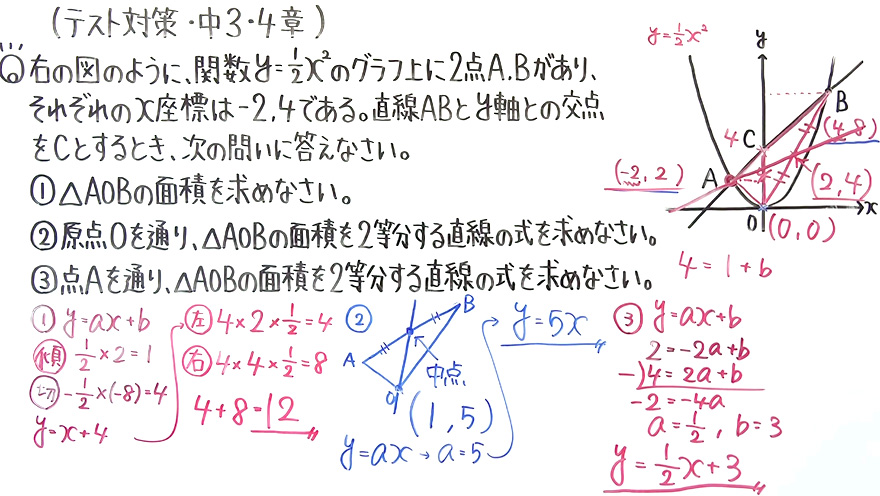 (テスト対策・中3・4章)
⑥右の図のように、関数y=1/2x²のグラフ上に2点A.Bがあり、
それぞれのx座標は-2,4である。直線ABとy軸との交点
をCとするとき、次の問いに答えなさい。
①△AOBの面積を求めなさい。
②原点Oを通り、△AOBの面積を2等分する直線の式を求めなさい。
③点Aを通り、△AOBの面積を2等分する直線の式を求めなさい。
y=1/2x²
y
B
(4,8)
C
4
A
(-2,2)
(2,4)
x
O
(0,0)
4=1+b
① y=ax+b
傾 1/2×2=1
切 -1/2×(-8)=4
y=x+4
左 4×2×1/2=4
右 4×4×1/2=8
4+8=12
②
B
A
中点
O
(1,5)
y=ax→a=5
y=5x
③ y=ax+b
2=-2a+b
-)4=2a+b
-2=-4a
a=1/2, b=3
y=1/2x+3